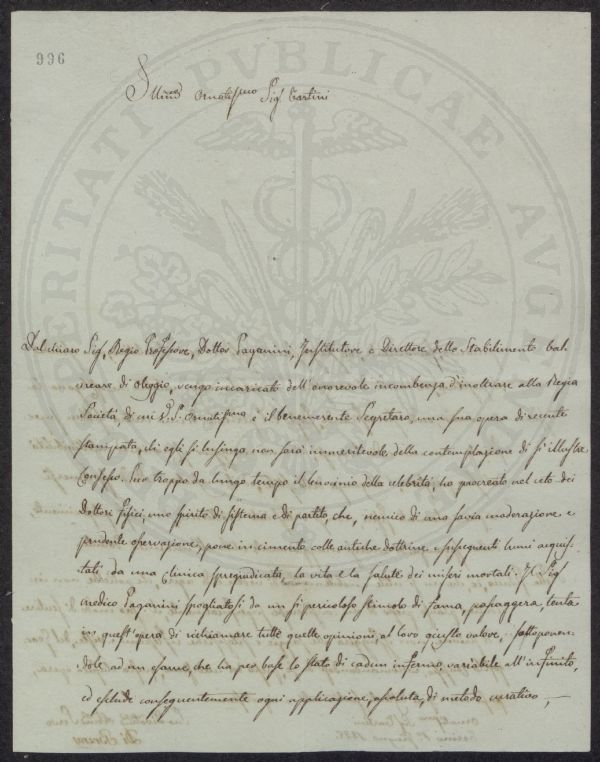 996
PVBLICAE
Ornatissimo Sig.r Cartini
Dal chiaro Sig. Regio Professore, Dottor Paganini, Institutore e Direttore dello Stabilimento bal
neare di Oleggio, vengo incaricato dell'onorevole incombenza d'inoltrare alla Regia
Società, di cui V.S. Ornatissima è il benemerente Segretaro, una sua opera di recente
stampata, ch'egli si lusinga non sarà immeritevole della contemplazione di sì illustre
Consesso. Pur troppo da lungo tempo il lenocinio della celebrità, ha procreato nel ceto dei
Dottori Fisici uno spirito di sistema e di partito, che, nemico di una savia moderazione e
prudente osservazione, pone in cimento colle antiche dottrine e susseguenti lumi acquis-
tati da una Clinica spregiudicata, la vita e la salute dei miseri mortali. Il Sig.
medico Paganini spogliatosi da un sì pericoloso stimolo di fama, passaggera, tenta
in quest'opera di richiamare tutte quelle opinioni, al loro giusto valore, sottoponen-
dole ad un esame, che ha per base lo stato di cadun infermo, variabile all'infinito,
ed esclude conseguentemente ogni applicazione, assoluta, di metodo curativo,